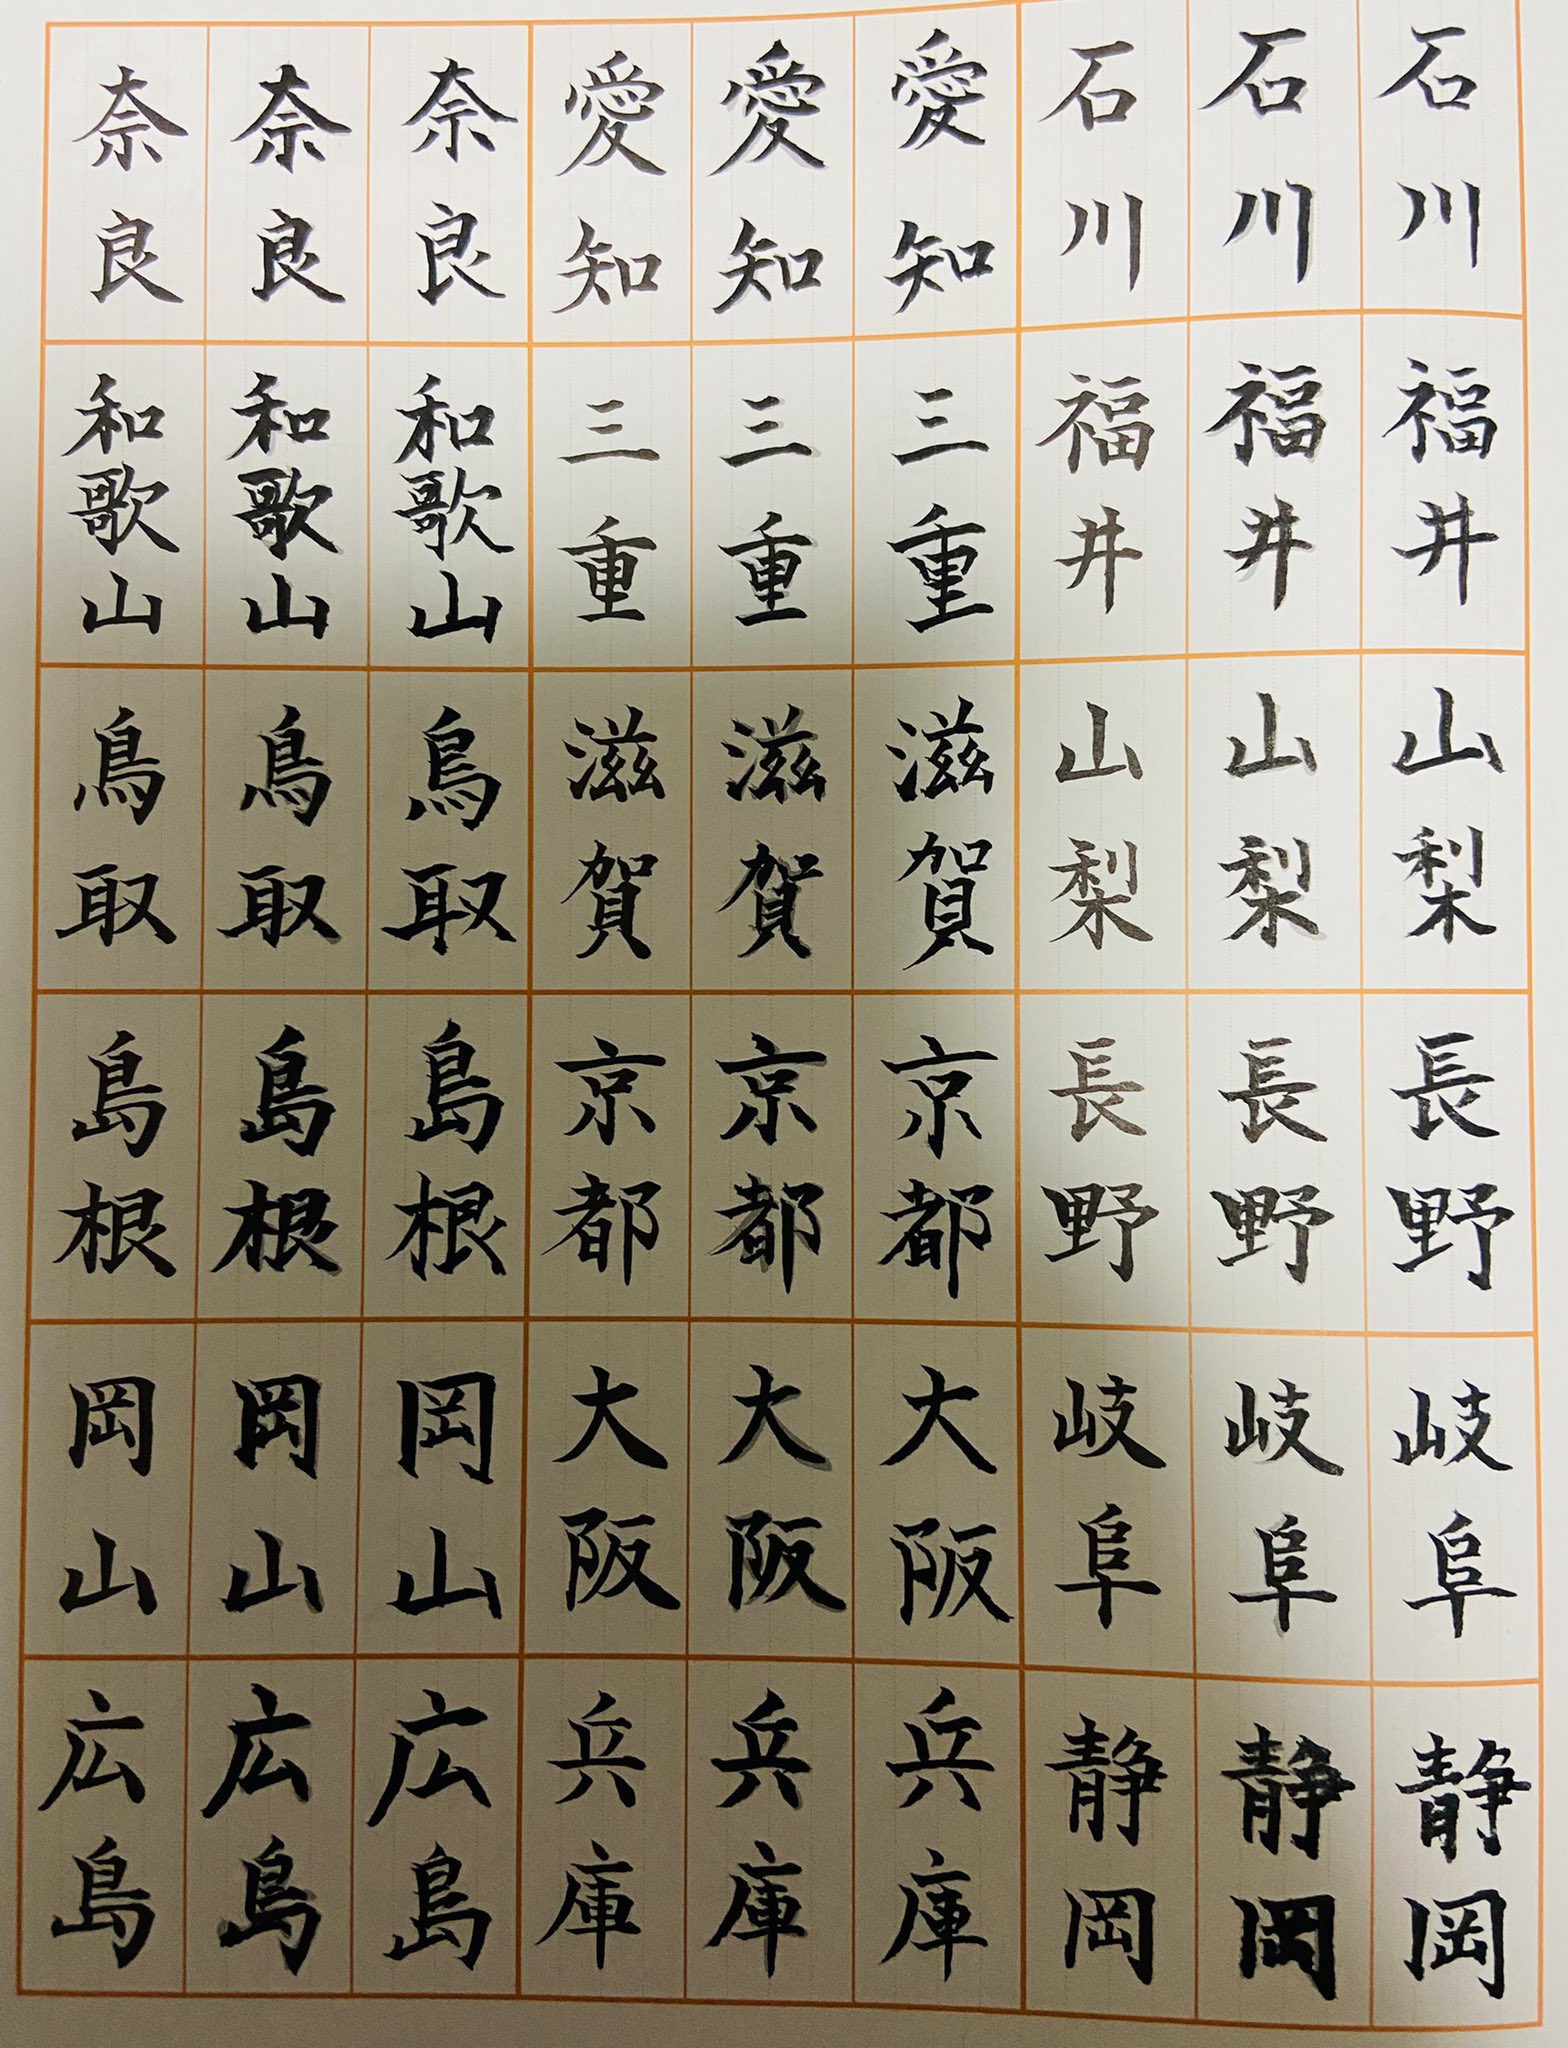 石川
福井
山梨
長野
岐阜
静岡
石川
福井
山梨
長野
岐阜
静岡
石川
福井
山梨
長野
岐阜
静岡
愛知
三重
滋賀
京都
大阪
兵庫
愛知
三重
滋賀
京都
大阪
兵庫
愛知
三重
滋賀
京都
大阪
兵庫
奈良
和歌山
鳥取
島根
岡山
広島
奈良
和歌山
鳥取
島根
岡山
広島
奈良
和歌山
鳥取
島根
岡山
広島